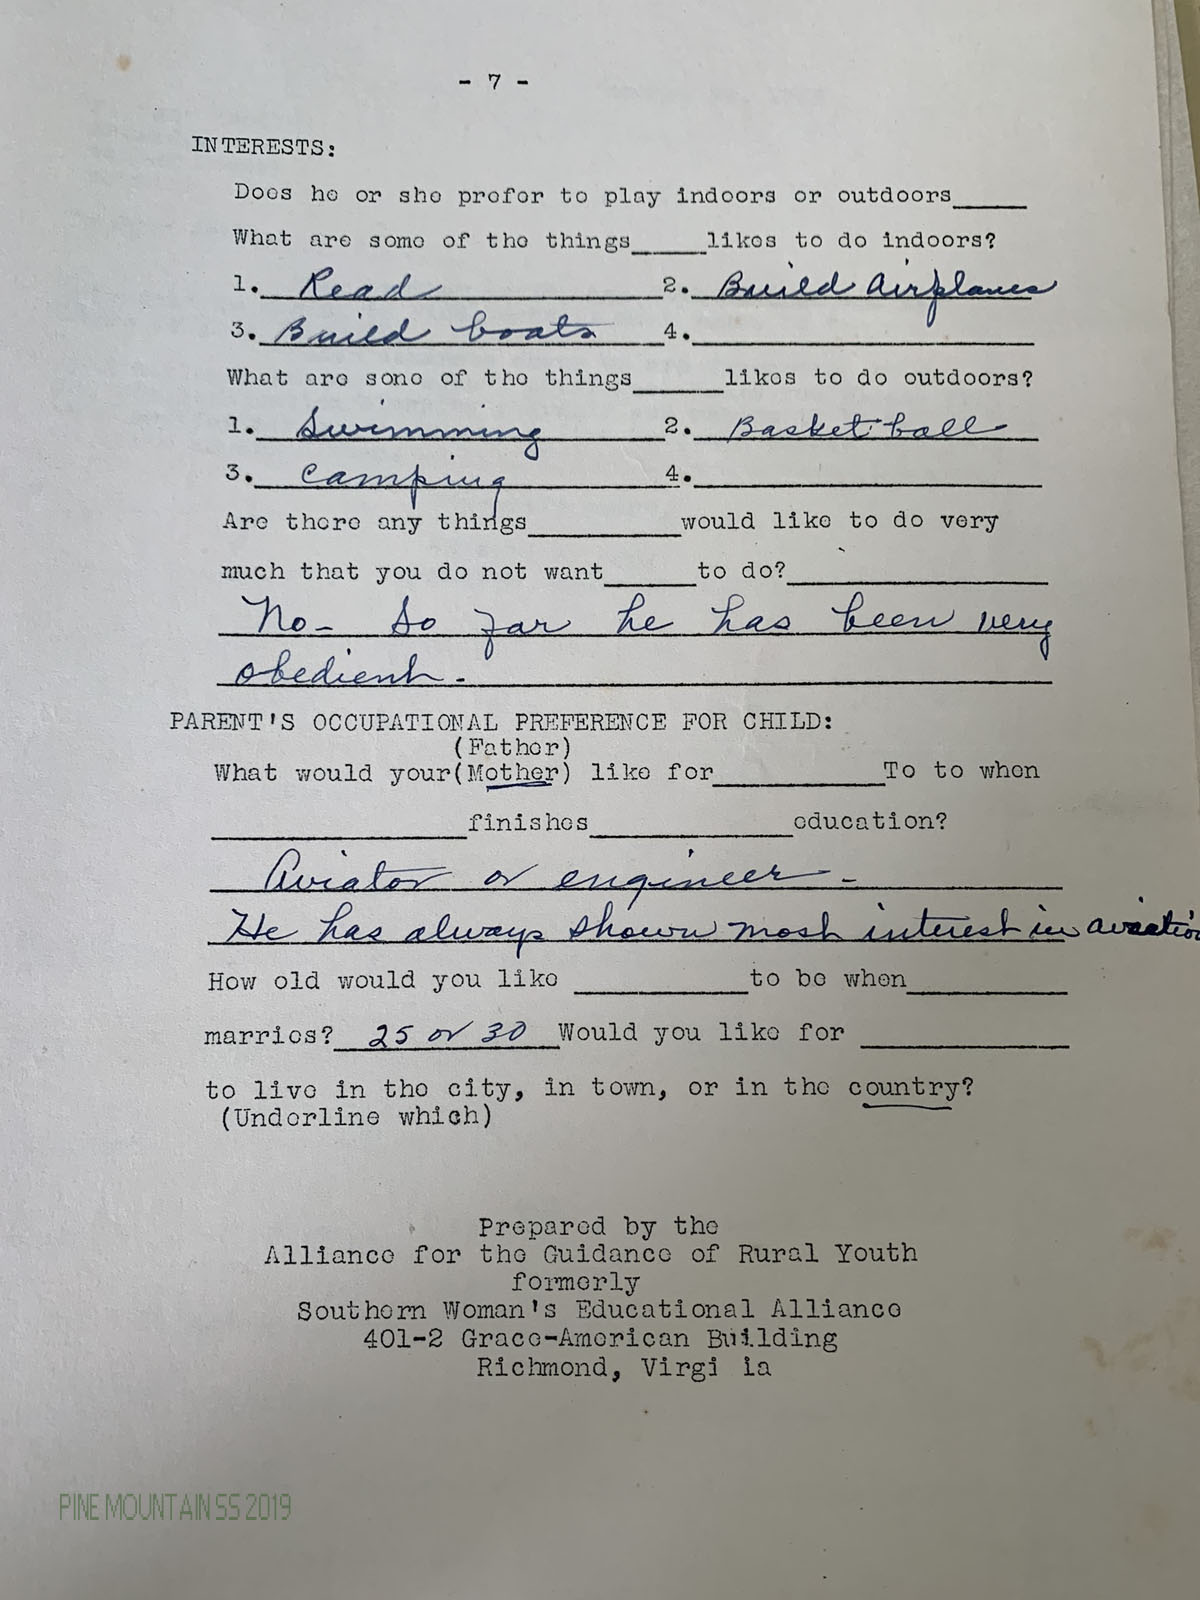 - 7 -
INTERESTS:
Does he or she prefer to play indoors or outdoors_____
What are some of the things_____likes to do indoors?
1. Read 2. Build Airplanes
3. Build boats 4.
What are some of the things______likes to do outdoors?
1. Swimming 2. Basket-ball
3. Camping 4.
Are there any things__________would like to do very
much that you do not want______to do?
No - So far he has been very
obedient.
PARENT'S OCCUPATIONAL PREFERENCE FOR CHILD:
(Father)
What would your(Mother) like for___________To to when
_________________finishes_____________education?
Aviator or engineer -
He has always shown most interest in aviation
How old would you like ___________to be when__________
marries? 25 or 30 Would you like for ______________
to live in the city, in town, or in the country?
(Underline which)
Prepared by the
Alliance for the Guidance of Rural Youth
formerly
Southern Woman's Educational Alliance
401-2 Grace-American Building
Richmond, Virgi ia
PINE MOUNTAIN SS 2019